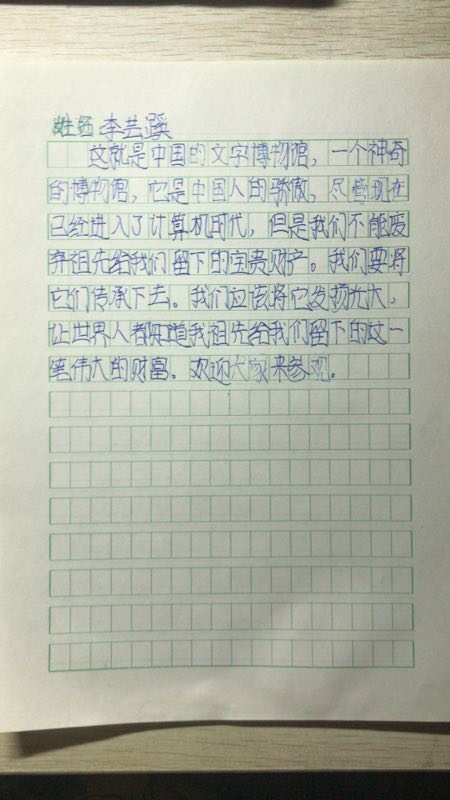 姓名 李芸蹊
这就是中国的文字博物馆，一个神奇
的博物馆，它是中国人的骄傲，尽管现在
已经进入了计算机时代，但是我们不能废
弃祖先给我们留下的宝贵财产。我们要将
它们传承下去。我们应该将它发扬光大，
让世界人都知道我祖先给我们留下的这一
笔伟大的财富。欢迎大家来参观。